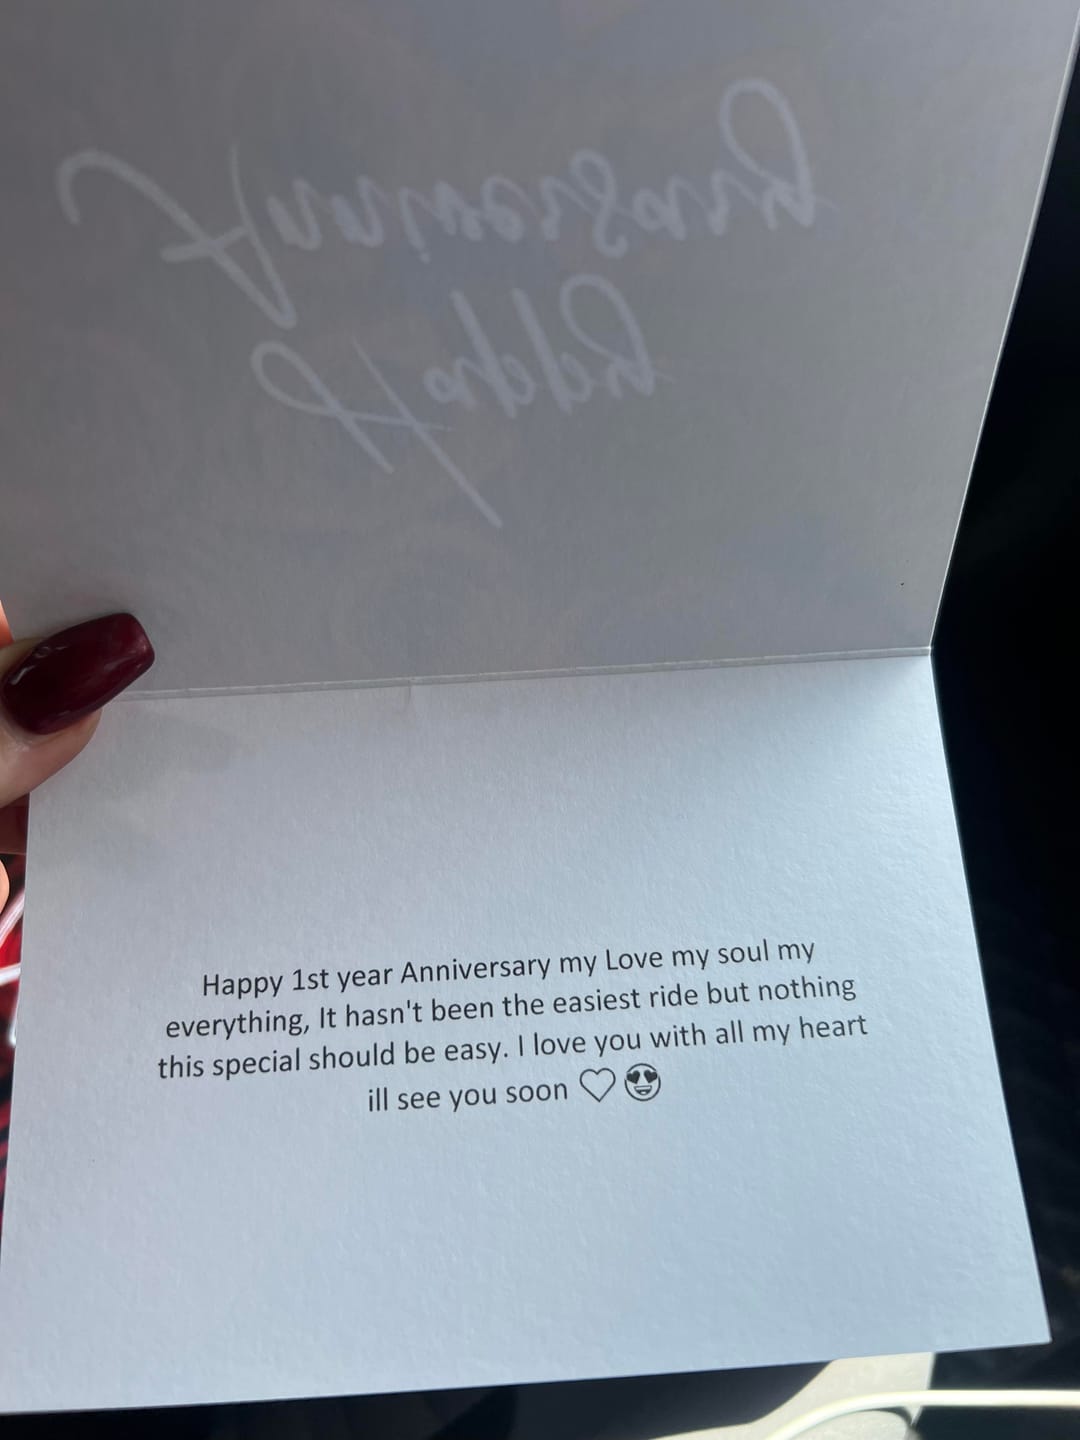 Happy
Anniversary
Happy 1st year Anniversary my Love my soul my
everything, It hasn't been the easiest ride but nothing
this special should be easy. I love you with all my heart
ill see you soon ♡ 😍